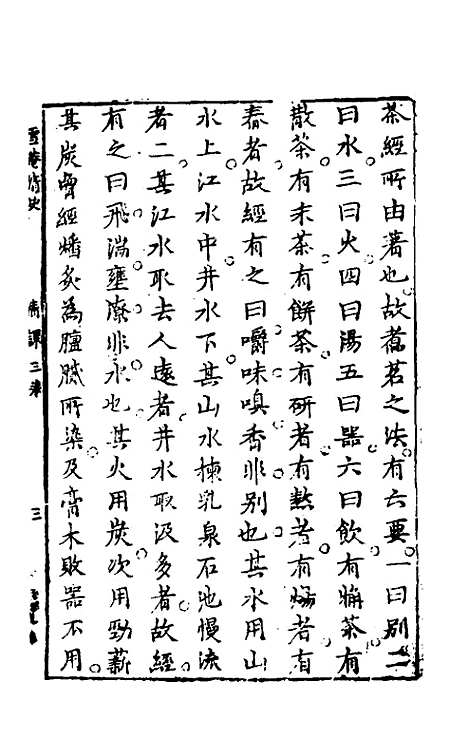 茶經所由著也故煮茗之法有六要一曰別二
曰水三曰火四曰湯五曰器六曰飲有觕茶有
散茶有末茶有餅茶有研者有熬者有煬者有
舂者故經有之曰嚼味嗅香非別也其水用山
水上江水中井水下其山水揀乳泉石池慢流
者二其江水取去人遠者井水取汲多者故經
有之曰飛湍壅潦非水也其火用炭次用勁薪
其炭曾經燔炙為膻膩所染及膏木敗器不用
清課三集
三